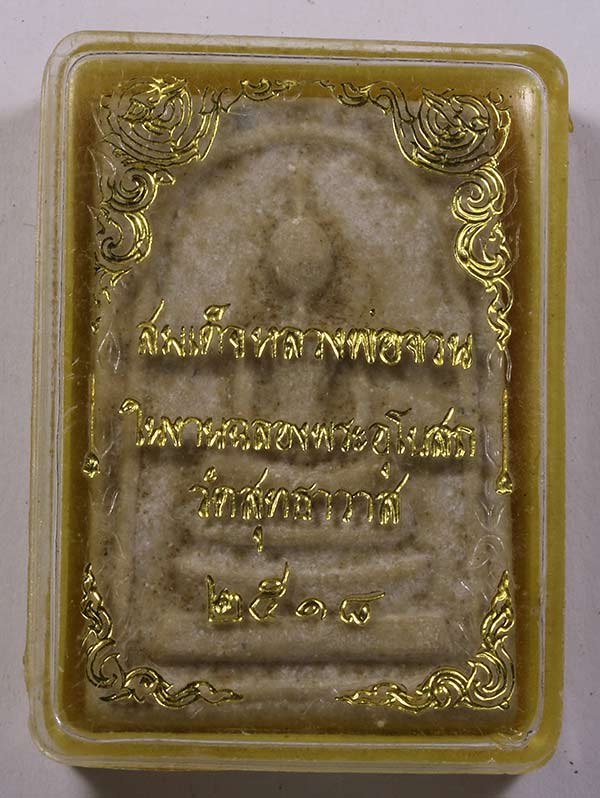 สมเด็จหลวงพ่อจวน
ในงานฉลองพระอุโบสถ
วัดสุทธาวาส
๒๕๑๘